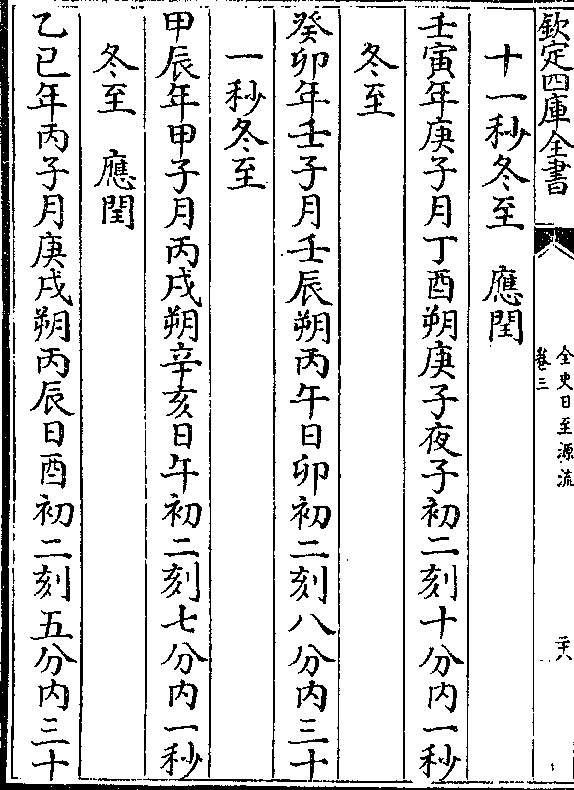 欽定四庫全書
全史日至源流
卷三
二十八
十一秒冬至　應閏
壬寅年庚子月丁酉朔庚子夜子初二刻十分内一秒
冬至
癸卯年壬子月壬辰朔丙午日卯初二刻八分内三十
一秒冬至
甲辰年甲子月丙戌朔辛亥日午初二刻七分内一秒
冬至　應閏
乙巳年丙子月庚戌朔丙辰日酉初二刻五分内三十